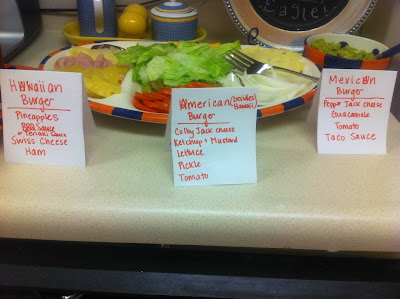 Eagle!
Hawaiian
Burger
Pineapples
BBQ Sauce
or Teriaki Sauce
Swiss Cheese
Ham
American (besides Hawaii)
Burger
Colby Jack cheese
Ketchup & Mustard
Lettuce
Pickle
Tomato
Mexican
Burger
Pepper Jack cheese
Guacamole
Tomato
Taco Sauce